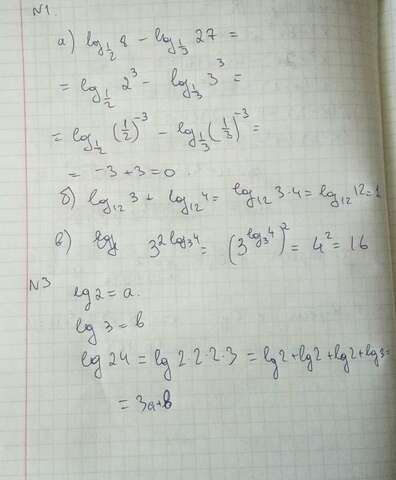 N1
а) log_{1/2} 8 − log_{1/3} 27 =
= log_{1/2} 2³ − log_{1/3} 3³ =
= log_{1/2} (1/2)⁻³ − log_{1/3} (1/3)⁻³ =
= −3+3=0.
б) log₁₂ 3 + log₁₂ 4 = log₁₂ 3·4 = log₁₂ 12 = 1
в) 3^{2 log₃ 4} = (3^{log₃ 4})² = 4² = 16
N3
lg 2 = a.
lg 3 = b
lg 24 = lg 2·2·2·3 = lg2+lg2+lg2+lg3=
= 3a+b